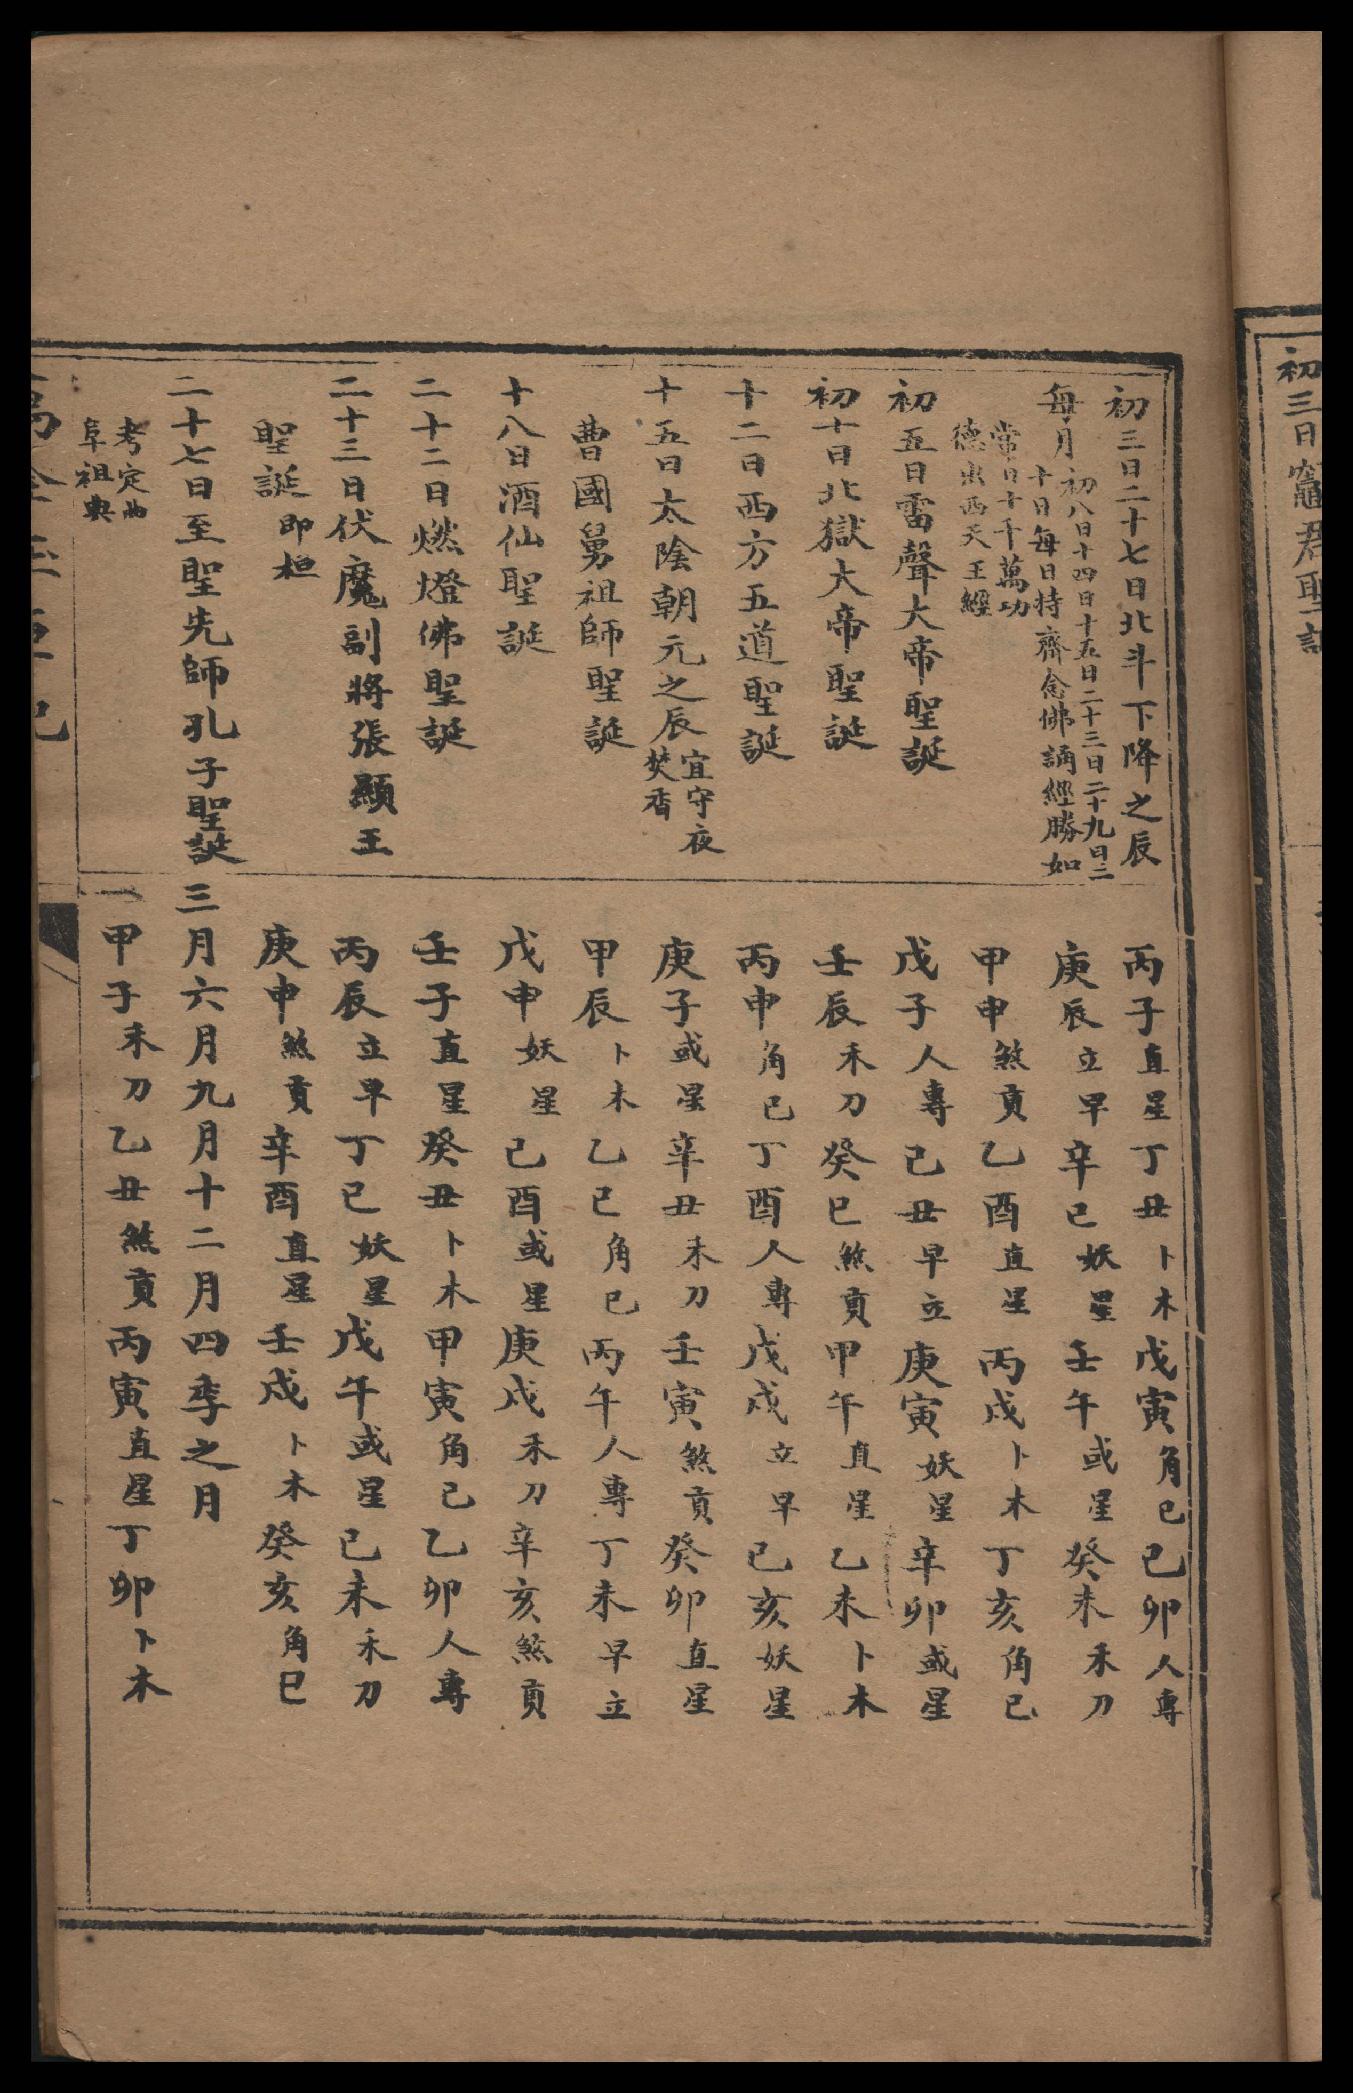 初三日竈君聖誕
初三日二十七日北斗下降之辰
每月初八日十四日十五日二十三日二十九日二
十日每日持齋念佛誦經勝如
常日十千萬功
德出西天王經
初五日雷聲大帝聖誕
初十日北獄大帝聖誕
十二日西方五道聖誕
十五日太陰朝元之辰宜守夜
焚香
曹國舅祖師聖誕
十八日酒仙聖誕
二十二日燃燈佛聖誕
二十三日伏魔副將張顯王
聖誕即桓
二十七日至聖先師孔子聖誕
考定曲
阜祖典
丙子直星丁丑卜木戊寅角已己卯人專
庚辰立早辛巳妖星壬午或星癸未禾刀
甲申煞貢乙酉直星丙戌卜木丁亥角已
戊子人專己丑早立庚寅妖星辛卯或星
壬辰禾刀癸巳煞貢甲午直星乙未卜木
丙申角已丁酉人專戊戌立早己亥妖星
庚子或星辛丑禾刀壬寅煞貢癸卯直星
甲辰卜木乙巳角已丙午人專丁未早立
戊申妖星己酉或星庚戌禾刀辛亥煞貢
壬子直星癸丑卜木甲寅角已乙卯人專
丙辰立早丁巳妖星戊午或星己未禾刀
庚申煞貢辛酉直星壬戌卜木癸亥角巳
三月六月九月十二月四季之月
甲子禾刀乙丑煞貢丙寅直星丁卯卜木